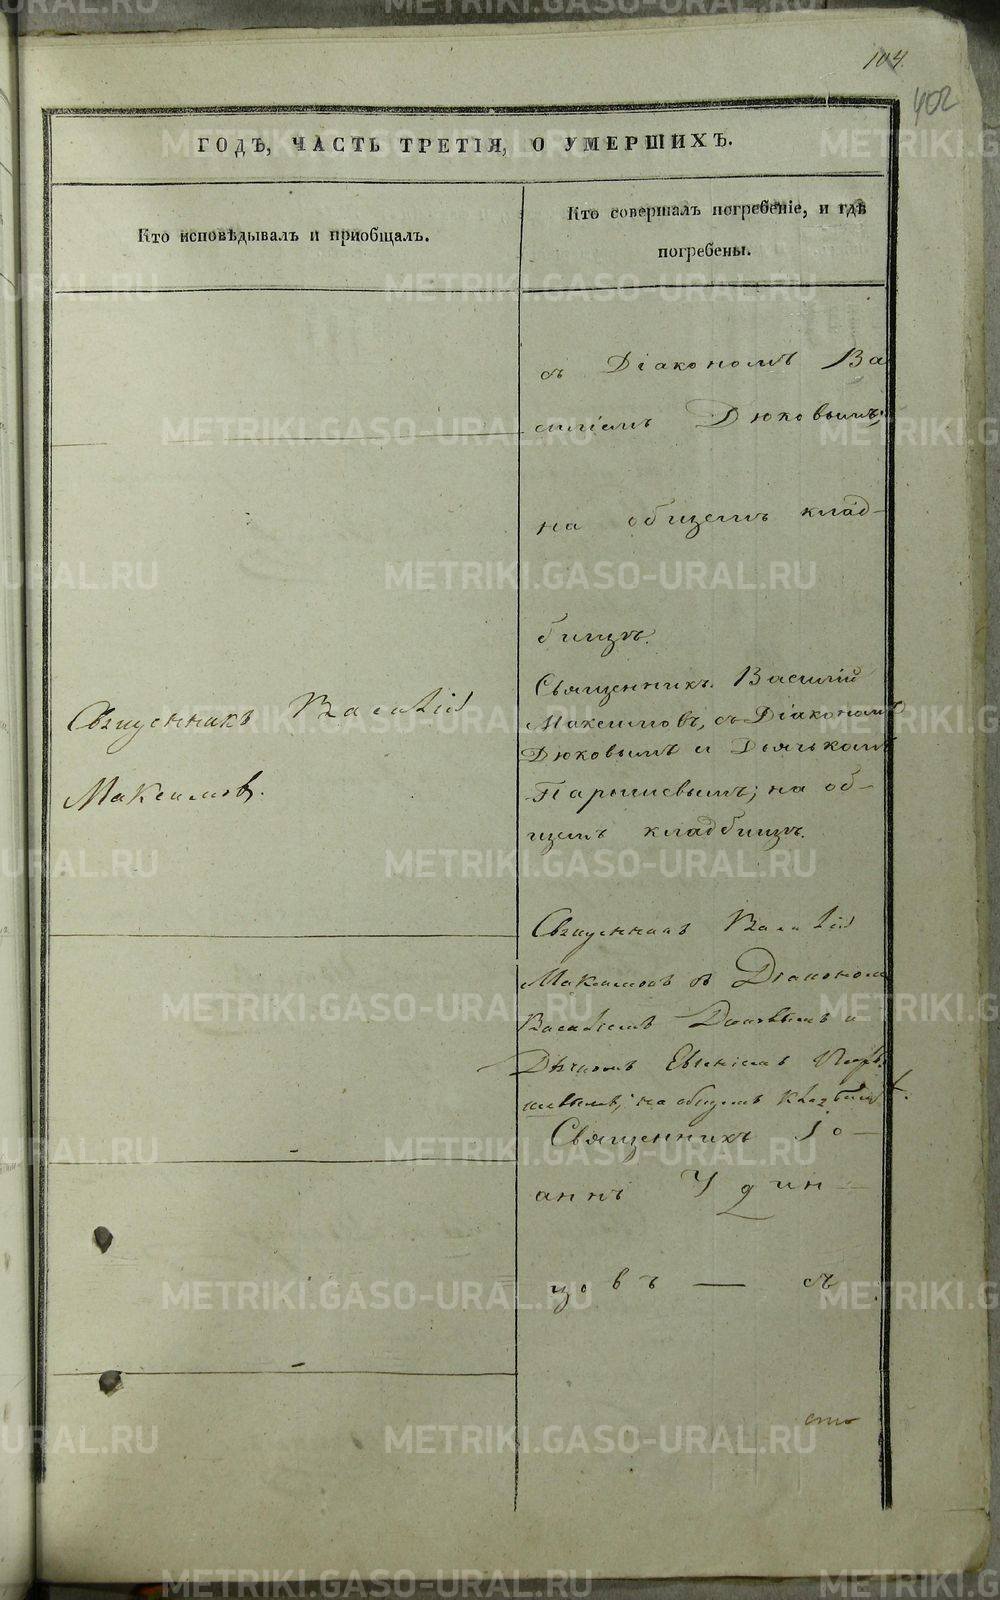 104.
402
ГОДѢ, ЧАСТЬ ТРЕТІЯ, О УМЕРШИХЪ.
Кто исповѣдывалъ и приобщалъ.
Кто совершалъ погребеніе, и гдѣ
погребены.
съ Діакономъ Ва
силіемъ Дюковымъ;
на общемъ клад-
бищѣ.
Священникъ Василій
Максимовъ.
Священникъ Василій
Максимовъ, съ Діакономъ
Дюковымъ и Дьячкомъ
Парышевымъ; на об-
щемъ кладбищѣ.
Священникъ Василій
Максимовъ съ Діакономъ
Василіемъ Дюковымъ и
Дьячкомъ
на общемъ кладбищѣ.
Священникъ Іо-
аннъ Удин-
цовъ — съ
METRIKI.GASO-URAL.RU